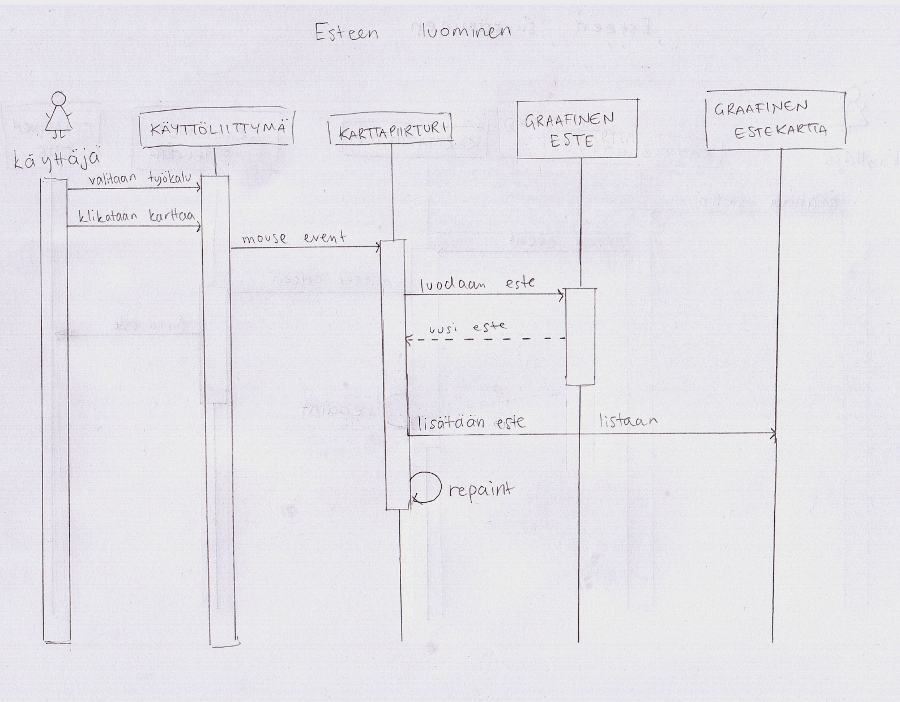 Esteen luominen
käyttäjä
KÄYTTÖLIITTYMÄ
KARTTAPIIRTURI
GRAAFINEN
ESTE
GRAAFINEN
ESTEKARTTA
valitaan työkalu
klikataan karttaa
mouse event
luodaan este
uusi este
lisätään este listaan
repaint